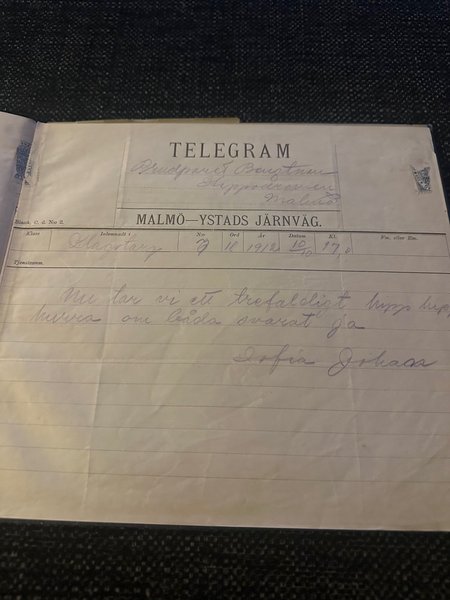 TELEGRAM
Brudparet
Hippodromen
Malmö
MALMÖ—YSTADS JÄRNVÄG.
Blank. C. d. No 2.
Klass Inlemnadt i No Ord År Datum Kl. Fm. eller Em.
7 18 1912 10/10 17
Tjenstanm.
Nu tar vi ett trefaldigt hipp hipp
hurra om båda svarat ja
Sofia Johan